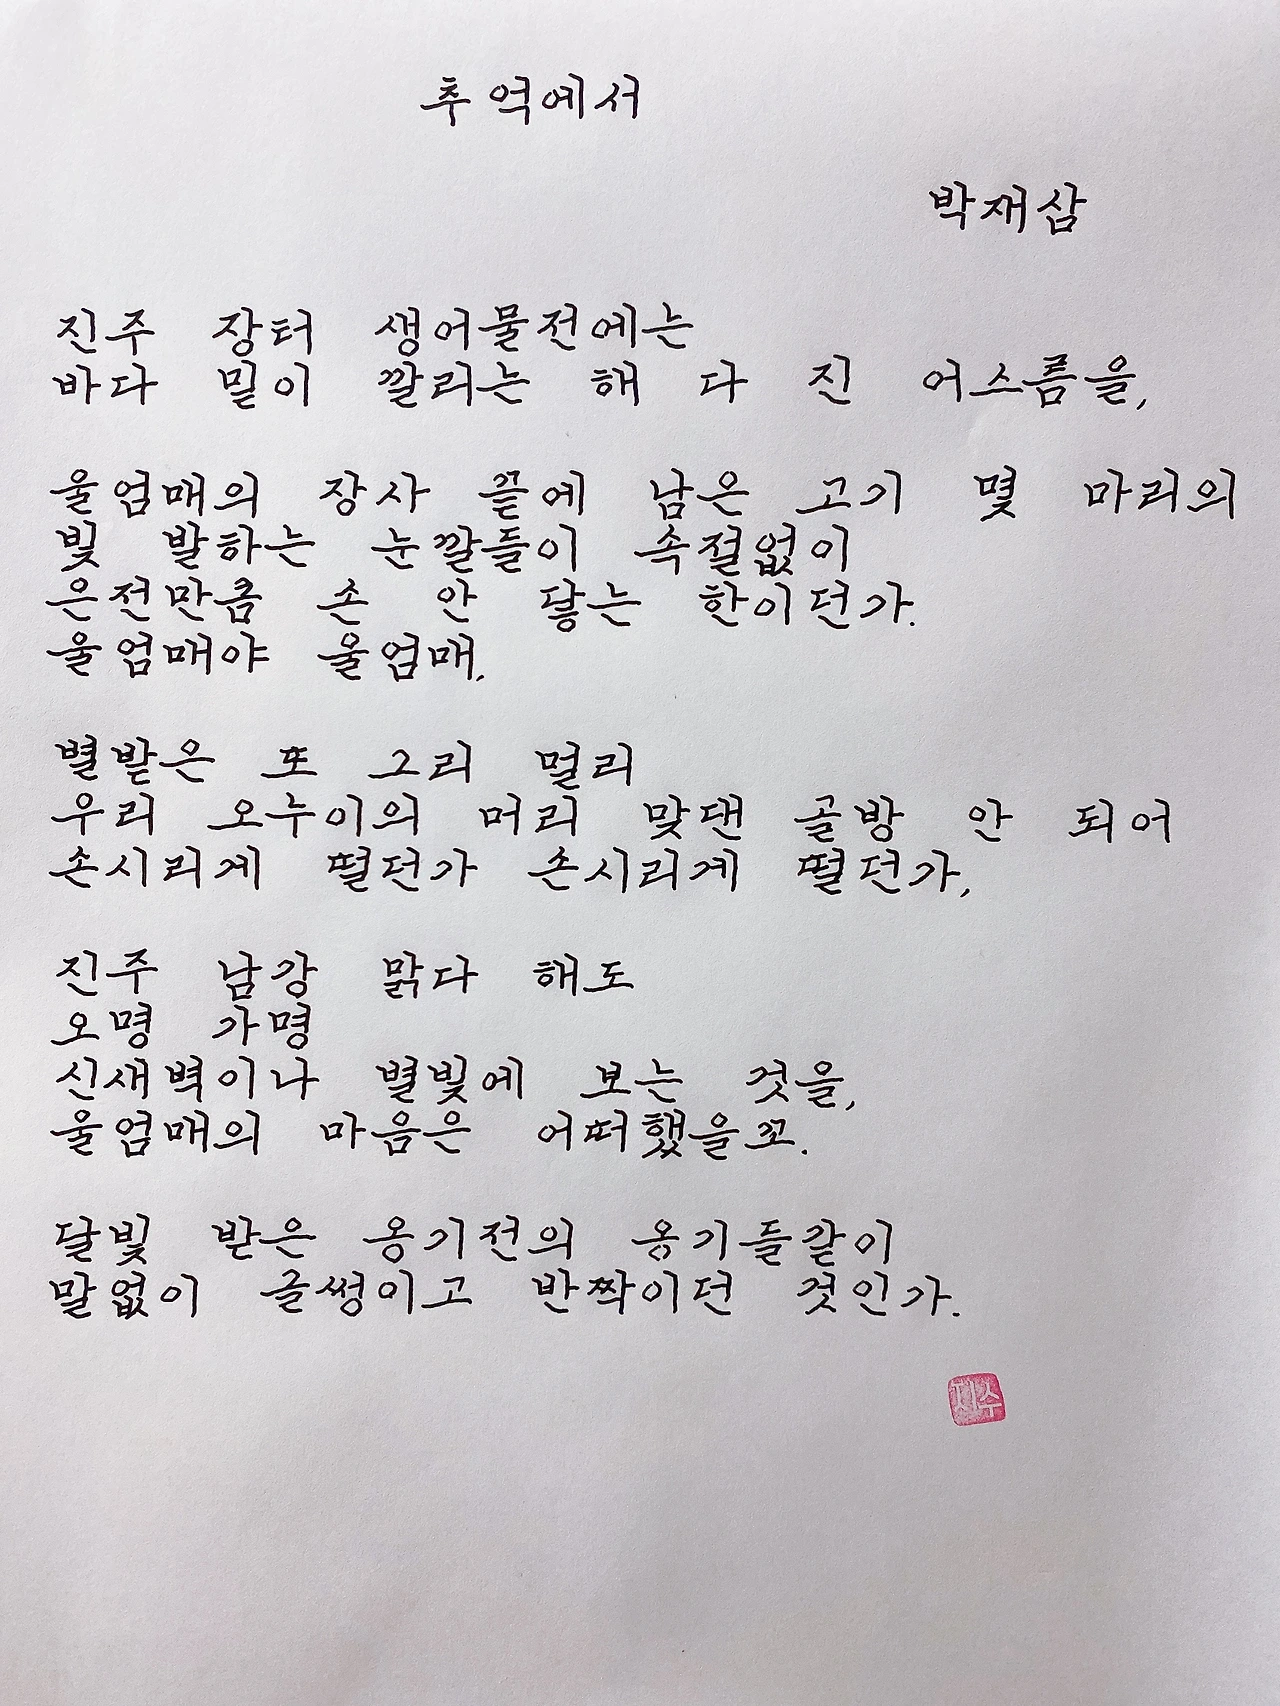 추억에서
박재삼
진주 장터 생어물전에는
바다 밑이 깔리는 해 다 진 어스름을,
울엄매의 장사 끝에 남은 고기 몇 마리의
빛 발하는 눈깔들이 속절없이
은전만큼 손 안 닿는 한이던가.
울엄매야 울엄매,
별밭은 또 그리 멀리
우리 오누이의 머리 맞댄 골방 안 되어
손시리게 떨던가 손시리게 떨던가,
진주 남강 맑다 해도
오명 가명
신새벽이나 별빛에 보는 것을,
울엄매의 마음은 어떠했을꼬.
달빛 받은 옹기전의 옹기들같이
말없이 글썽이고 반짝이던 것인가.
지수